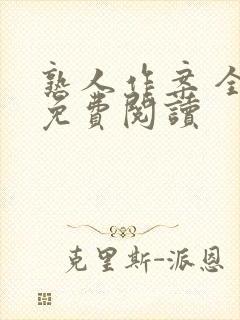 熟人作案 全
免費閱讀
克里斯-派恩